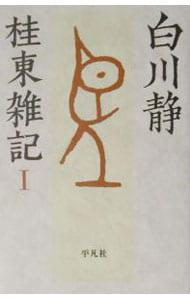 白川静
桂東雑記
I
平凡社